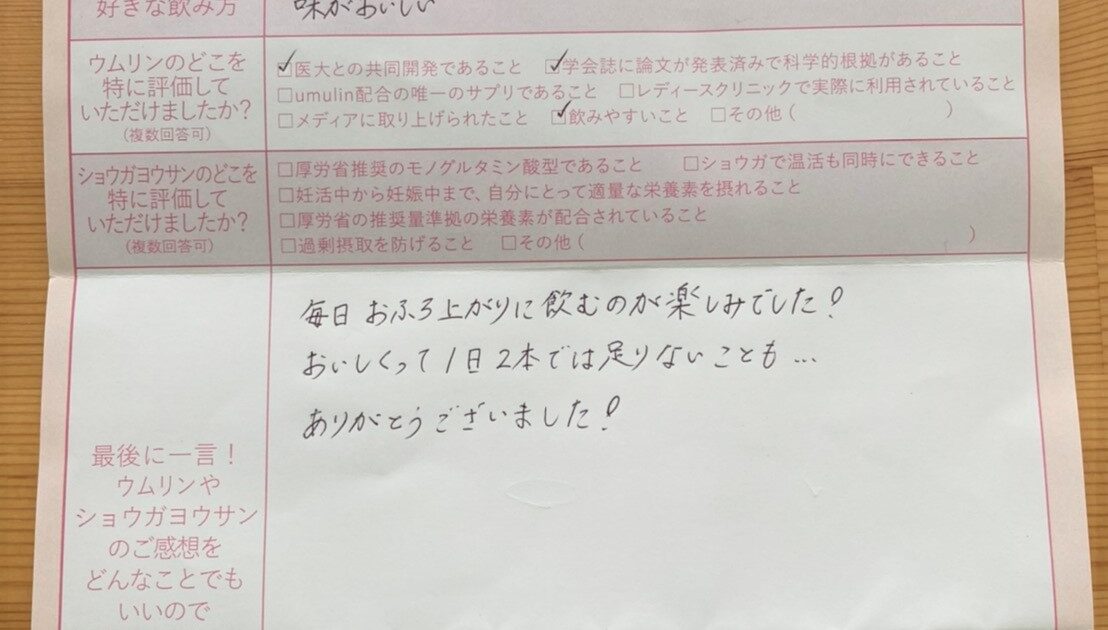 好きな飲み方
味がおいしい
ウムリンのどこを
特に評価して
いただけましたか?
(複数回答可)
☑医大との共同開発であること ☑学会誌に論文が発表済みで科学的根拠があること
□umulin配合の唯一のサプリであること □レディースクリニックで実際に利用されていること
□メディアに取り上げられたこと ☑飲みやすいこと □その他( )
ショウガヨウサンのどこを
特に評価して
いただけましたか?
(複数回答可)
□厚労省推奨のモノグルタミン酸型であること □ショウガで温活も同時にできること
□妊活中から妊娠中まで、自分にとって適量な栄養素を摂れること
□厚労省の推奨量準拠の栄養素が配合されていること
□過剰摂取を防げること □その他( )
毎日おふろ上がりに飲むのが楽しみでした!
おいしくって1日2本では足りないことも…
ありがとうございました!
最後に一言!
ウムリンや
ショウガヨウサン
のご感想を
どんなことでも
いいので